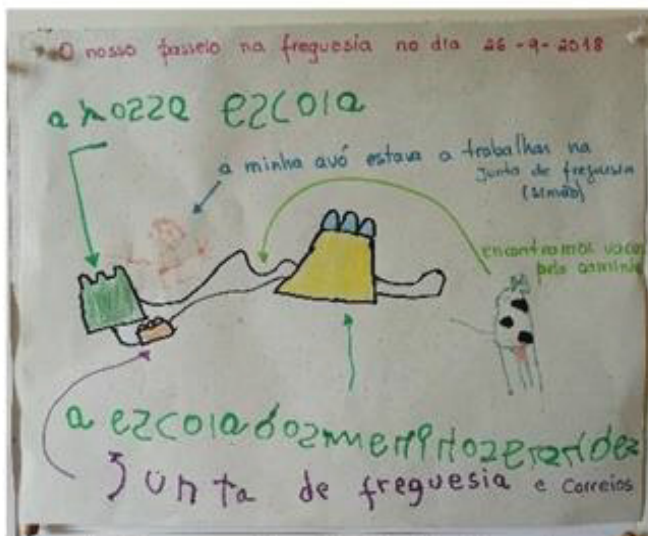 O nosso passeio na freguesia no dia 26-9-2018
a nozza ezcola
a minha avó estava a trabalhar na
junta de freguesia
(simão)
encontramos vacas
pelo caminho
a ezcola dozmeninozgrandez
Junta de freguesia e correios